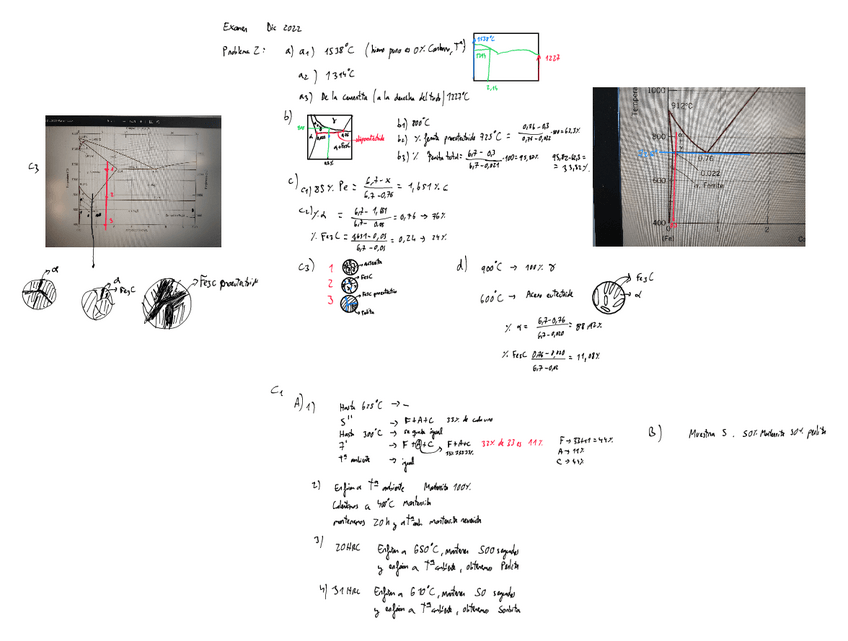 Examen Dic 2022
Problema 2: a) a1) 1538°C (hierro puro es 0% Carbono, Tª)
a2) 1314°C
a3) De la cementita (a la derecha del todo) 1227°C
1538°C
1227
2,14
b)
γ
α
α+Fe3C
b1) 800°C
b2) % ferrita proeutectoide 725°C = 0,76-0,3 / 0,76-0,022 ·100=62,3%
b3) % ferrita total: 6,7-0,3 / 6,7-0,021 ·100=95,82%
95,82-62,3=
= 33,52%
c) c1) 85% Pe = 6,7-x / 6,7-0,76 = 1,651% C
c2) % α = 6,7-1,651 / 6,7-0,03 = 0,76 → 76%
% Fe3C = 1,651-0,03 / 6,7-0,03 = 0,24 → 24%
c3)
1 Austenita
2 Fe3C
3 Fe3C proeutectoide
Perlita
d) 900°C → 100% γ
600°C → Acero eutectoide
Fe3C
α
% α = 6,7-0,76 / 6,7-0,020 = 88,92%
% Fe3C 0,76-0,020 / 6,7-0,02 = 11,08%
C3
1
2
3
α
α
Fe3C
Fe3C proeutectoide
1000
912°C
800
0.76
0.022
α, Ferrite
400
0
1
2
(Fe)
C1
A) 1) Hasta 675°C → -
5'' → F+A+C 33% de cada uno
Hasta 300°C → se queda igual
7' → F+A+C F+A+C 33% de 33 es 11%
Tª ambiente → igual
F → 33+11=44%
A → 11%
C → 44%
2) Enfrían a Tª ambiente Martensita 100%
Calentamos a 400°C Martensita
mantenemos 20h y a Tª amb. martensita revenida
3) 20HRC Enfrían a 650°C, mantener 500 segundos
y enfrían a Tª ambiente, obtenemos Perlita
4) 31HRC Enfrían a 610°C, mantener 50 segundos
y enfrían a Tª ambiente, obtenemos Sorbita
B) Muestra S. 50% Martensita 50% perlita